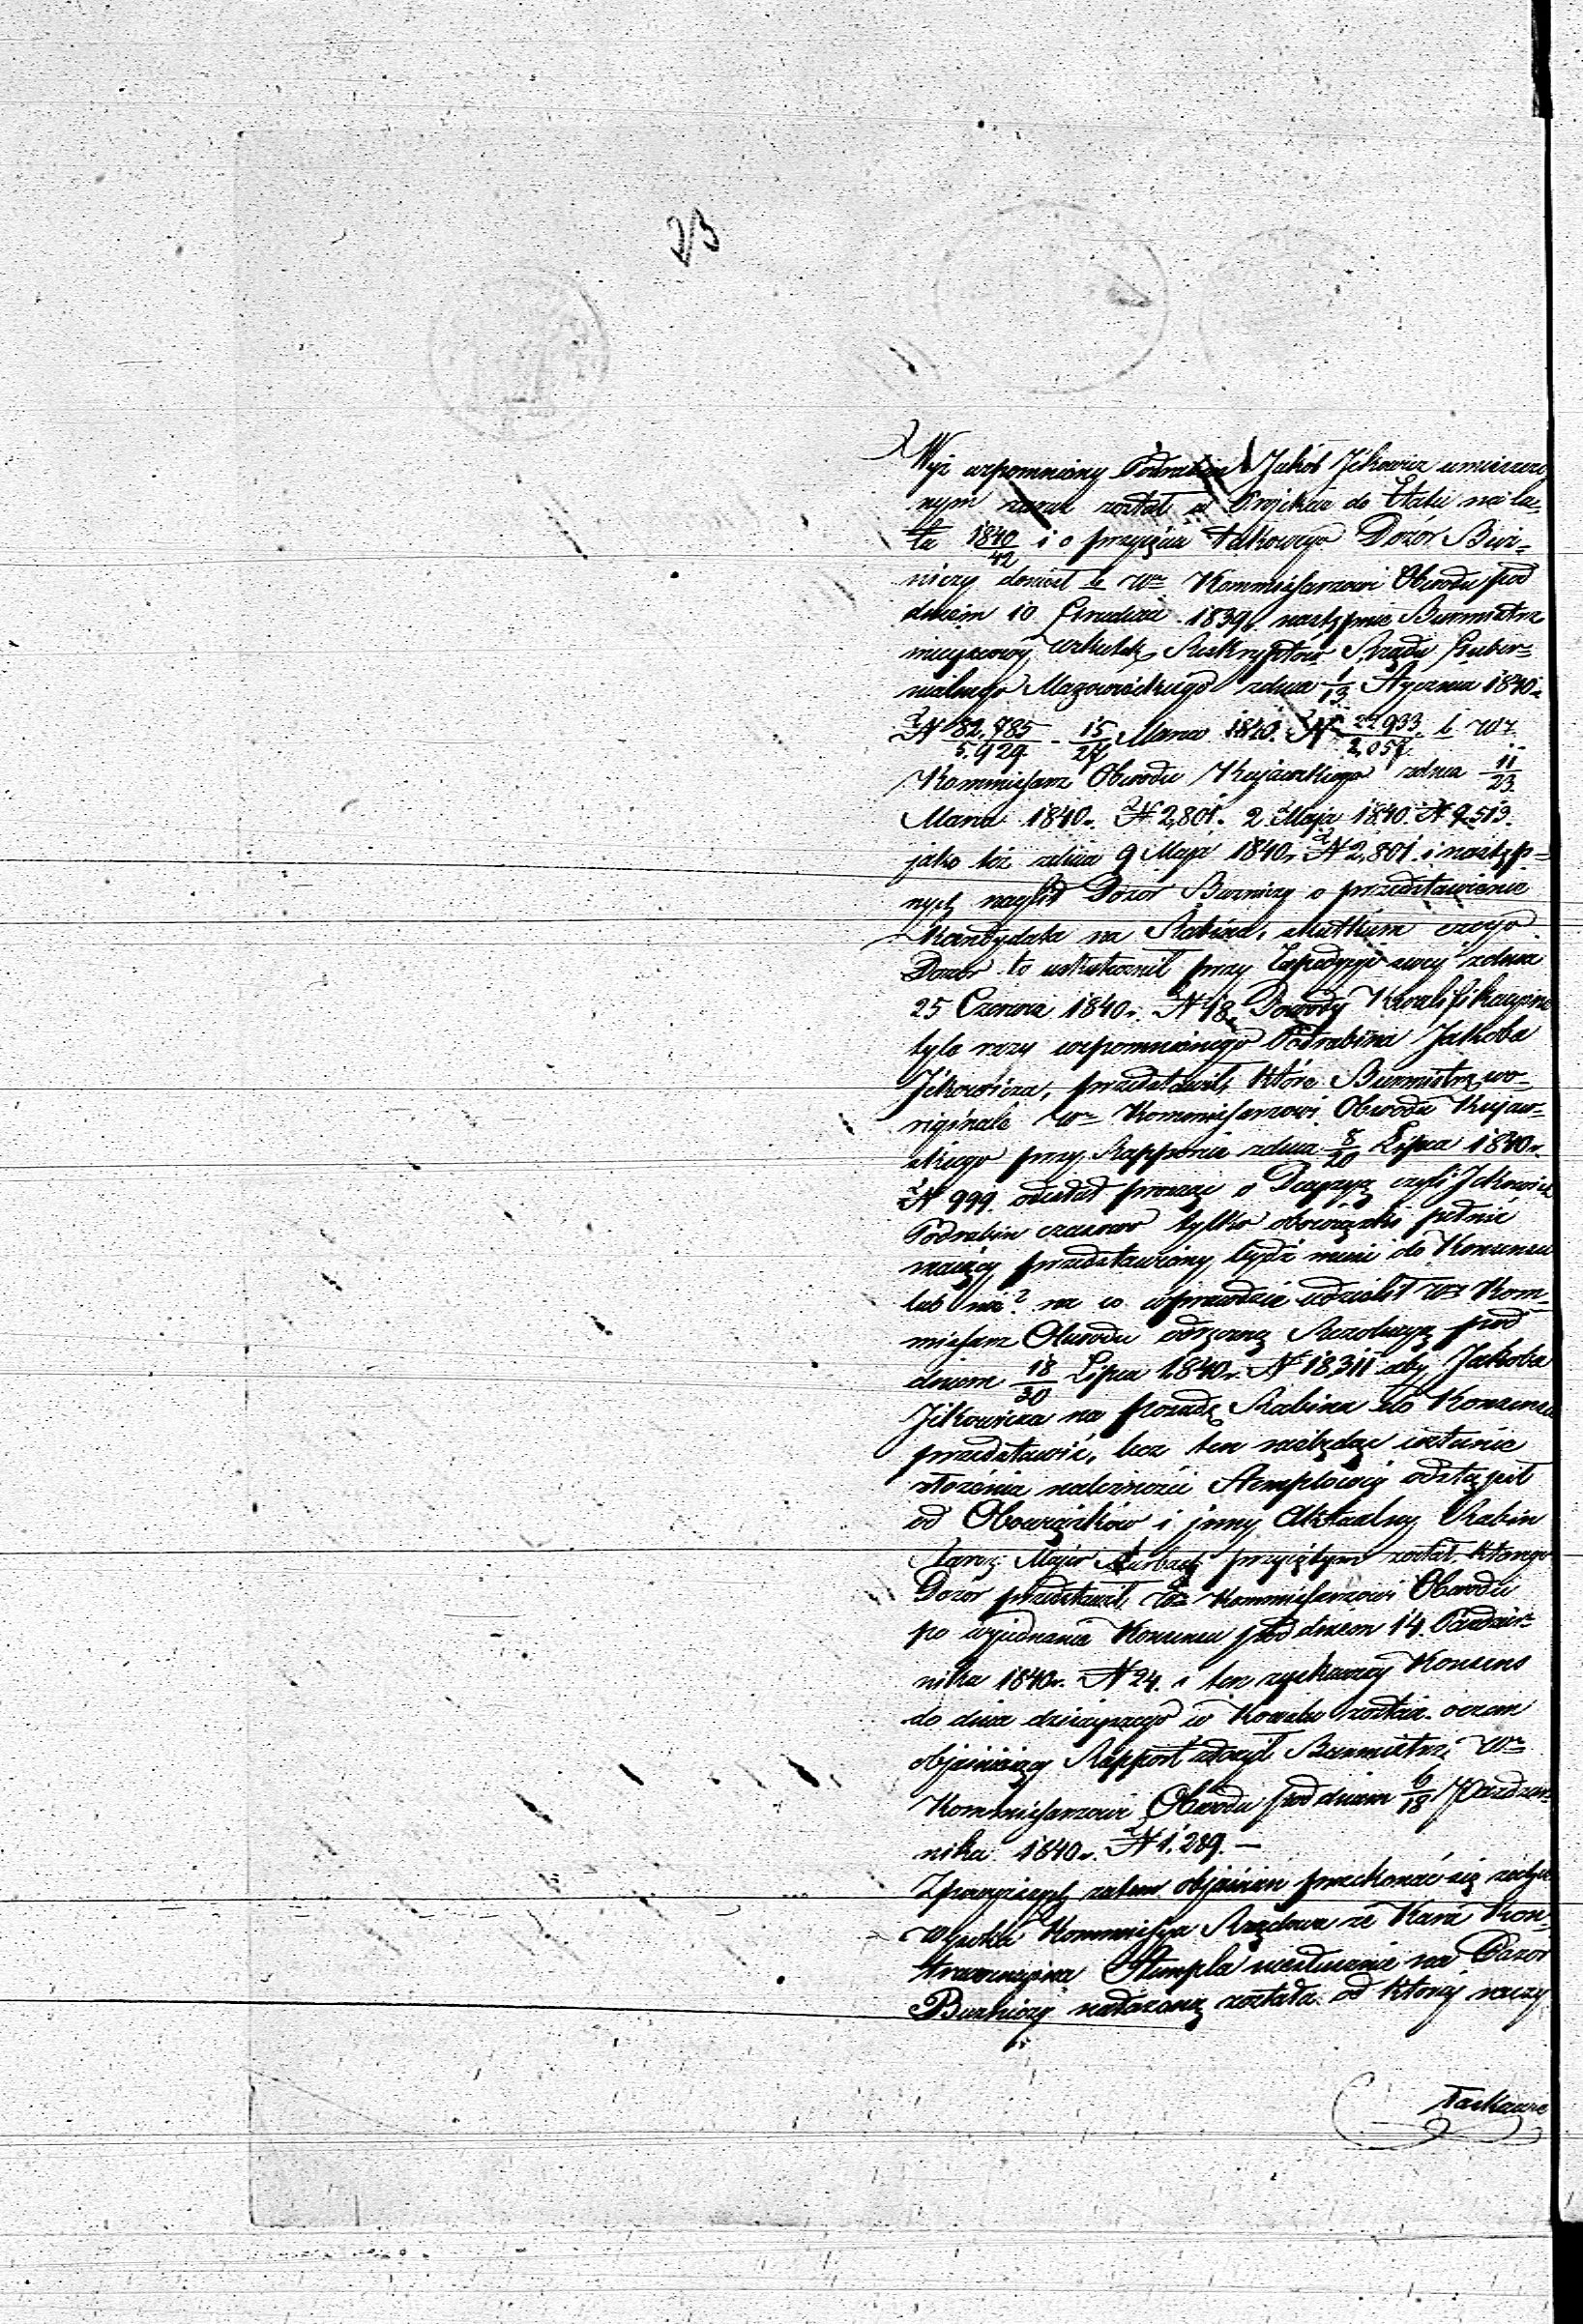 23
Wyż wspomniony Podrabin Jakób Jckowicz umieszczo
nym zaraz został w Projekcie do Etatu na la-
ta 1840/42 i o przyjęciu takowego Dozór Buż-
niczy doniósł Wmu Kommissarzowi Obwodu pod
dniem 10 Grudnia 1839 r. następnie Burmistrz
mieyscowy wskutek Reskryptów Rządu Guber-
nialnego Mazowieckiego z dnia 1/13 Stycznia 1840 r.
N 82,785/5,929 - 15/27 Marca 1840. N 22933/2,057. i Wo
Kommissarz Obwodu Kujawskiego z dnia 11/23
Marca 1840 r. N 2,801. 2 Maja 1840. N 9513.
jako też z dnia 9 Maja 1840 r. N 2,801 i następ-
nych naglił Dozór Bużniczy o przedstawienie
Kandydata na Rabina, skutkiem czego
Dozór to uskutecznił przy Expedycyi swey z dnia
25 Czerwca 1840 r. N 18. Dowody Kwalifikacyine
tyle razy wspomnionego Podrabina Jakoba
Jckowicza, przedstawił, które Burmistrz wo-
riginale Wmu Kommissarzowi Obwodu Kujaw-
skiego przy Rapporcie z dnia 8/20 Lipca 1840 r.
N 999. odesłał prosząc o Decyzyę czyli Jckowicz
Podrabin czasowo tylko obowiązki pełnić
mający przedstawiony bydź musi do Konsensu
lub nie? na co wprawdzie udzielił Wny Kom-
missarz Obwodu odręczną Rezolucyę pod
dniem 18/30 Lipca 1840 r. N 18311 aby Jakoba
Jckowicza na posadę Rabina do Konsensu
przedstawić, lecz ten niebędąc wstanie
złożenia należności Stemplowéy odstąpił
od Obowiązków i jnny Aktualny Rabin
Majer Aurbach przyiętym został, którego
Dozór przedstawił Wmu Kommissarzowi Obwodu
po wyiednanie Konsensu pod dniem 14. Paździer-
nika 1840 r. N 24. i ten zyskawszy Konsens
do dnia dzisieyszego w Kowalu zostaie. oczem
objaśniaiący Rapport złożył Burmistrz Wmu
Kommissarzowi Obwodu pod dniem 6/18 Paździer-
nika 1840 r. N 1,289. —
Z powyższych zatem objaśnień przekonać się raczy
Wysoka Kommissya Rządowa że Kara Kon-
trawencyina Stempla niesłusznie na Dozór
Bużniczy nałożoną została. od któréy raczy
łaskawie